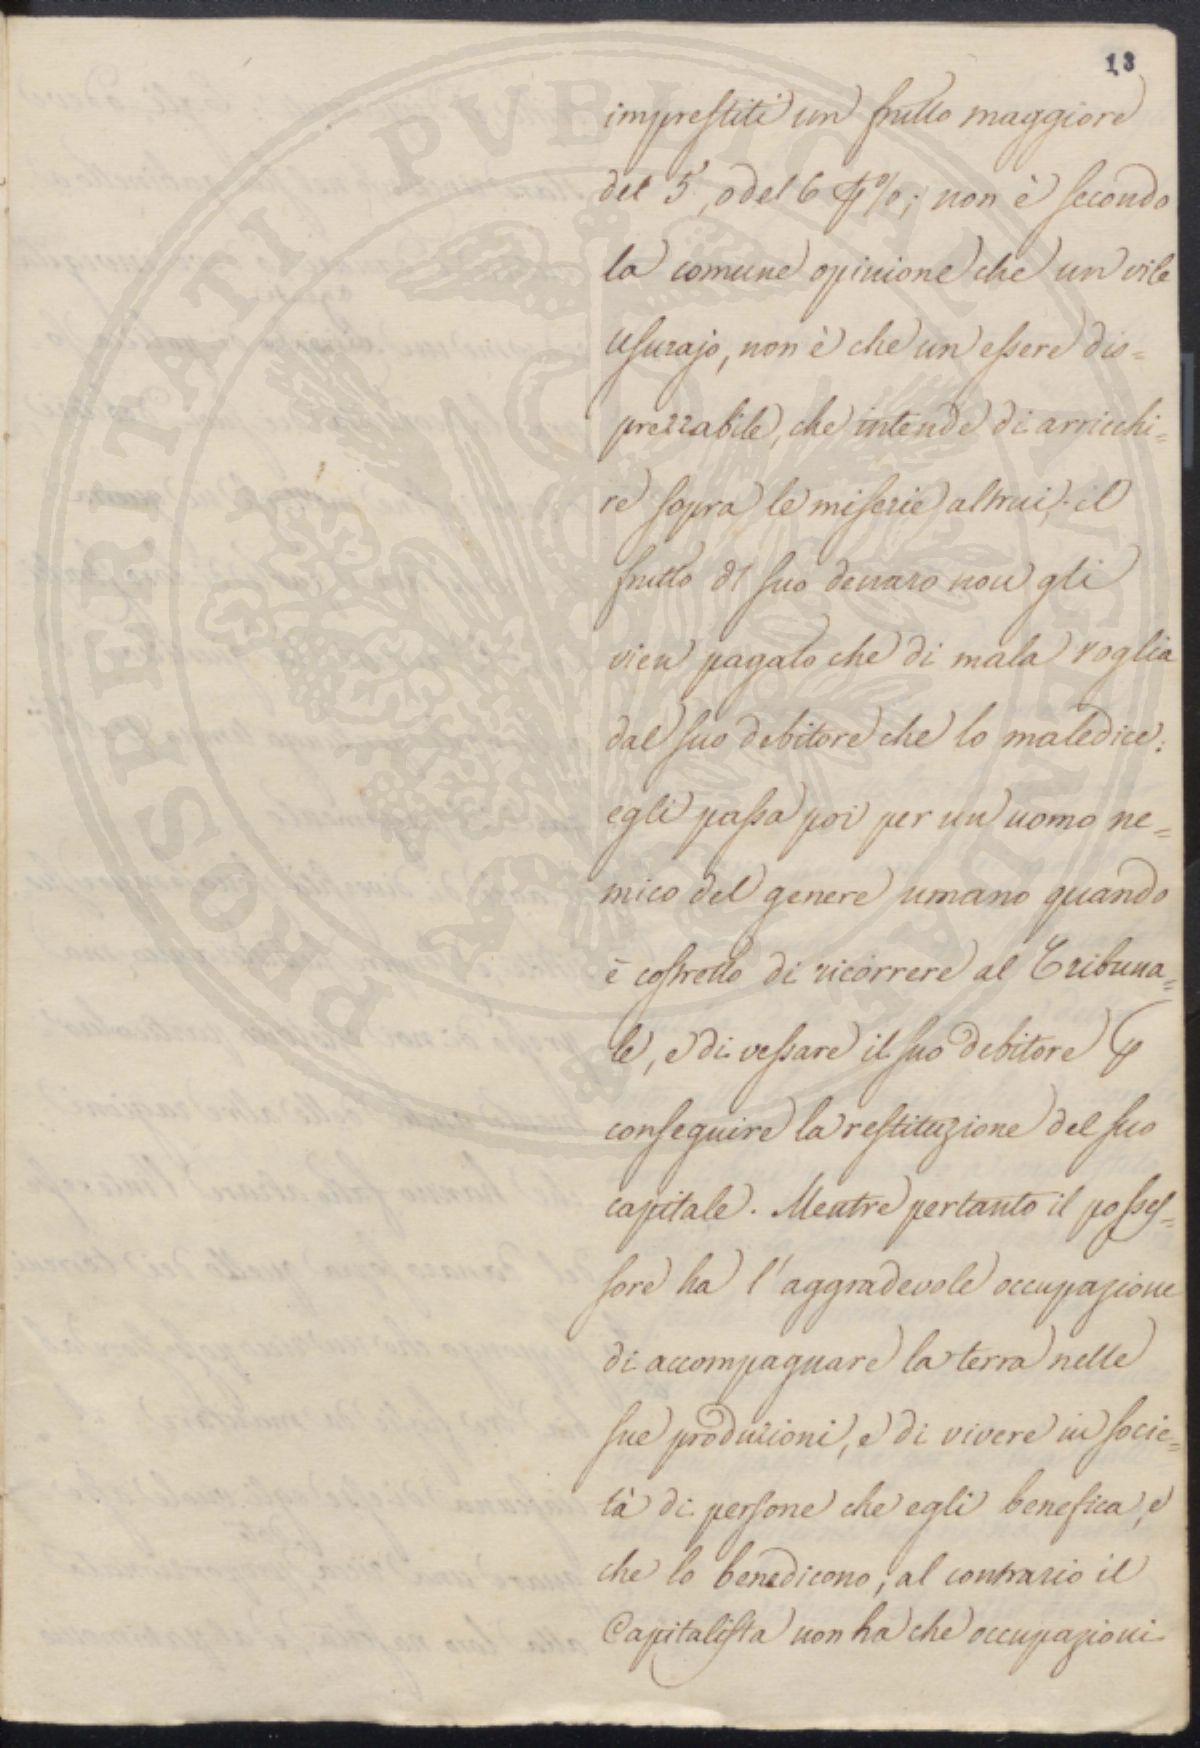 13
imprestiti un frutto maggiore
del 5, o del 6 p%; non è secondo
la comune opinione che un vile
usurajo, non è che un essere dis=
prezzabile, che intende di arricchi=
re sopra le miserie altrui; il
frutto di suo denaro non gli
vien pagato che di mala voglia
dal suo debitore che lo maledice:
egli passa poi per un uomo ne=
mico del genere umano quando
è costretto di ricorrere al Tribuna=
le, e di vessare il suo debitore p
conseguire la restituzione del suo
capitale. Mentre pertanto il posses=
sore ha l'aggradevole occupazione
di accompagnare la terra nelle
sue produzioni, e di vivere in socie=
tà di persone che egli benefica, e
che lo benedicono; al contrario il
Capitalista non ha che occupazioni
PUBLICAE
PROSPERITATI